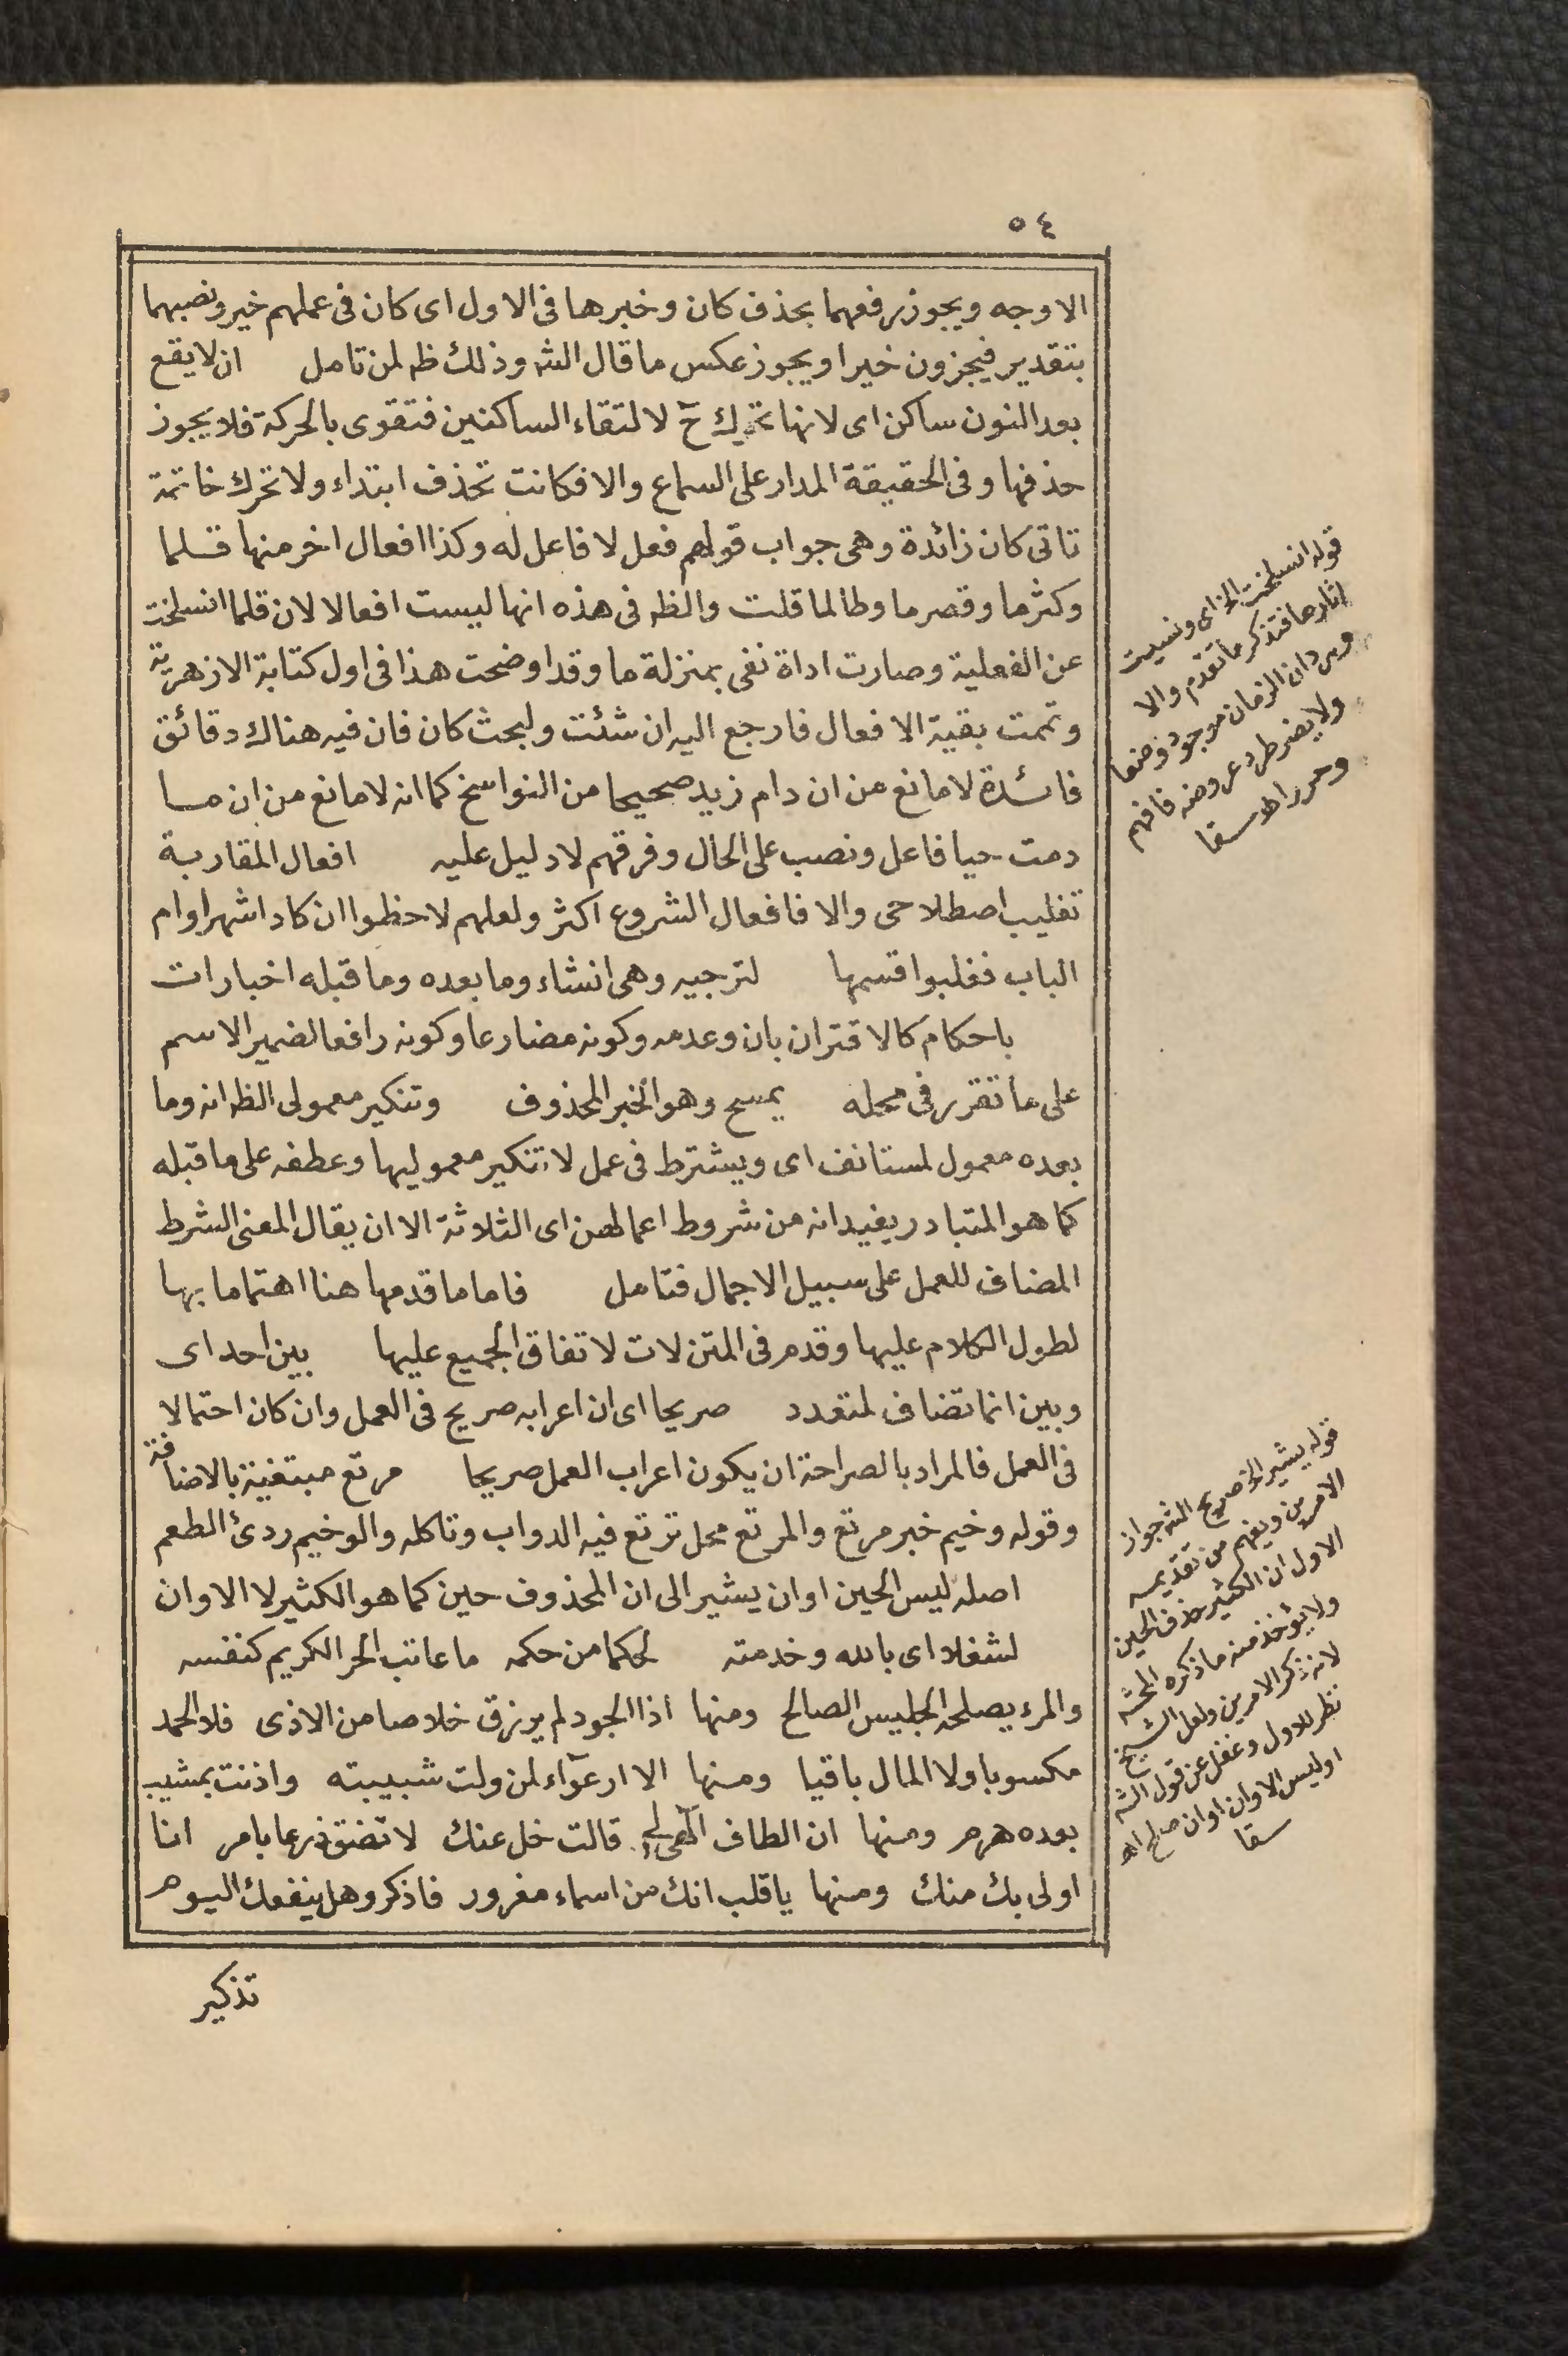 ٥٤
الاوجه ويجوز رفعهما بحذف كان وخبرها فى الاول اى كان فى عملهم خير ونصبهما
بتقدير فيجزون خيرا ويجوز عكس ما قال الشه وذلك ظه لمن تامل ان لا يقع
بعد النون ساكن اى لانها تحرك ح لالتقاء الساكنين فتقوى بالحركة فلا يجوز
حذفها وفى الحقيقة المدار على السماع والا فكانت تحذف ابتداء ولا تحرك خاتمة
تاتى كان زائدة وهى جواب قولهم فعل لا فاعل له وكذا افعال اخر منها قلما
وكثرما وقصرما وطالما قلت والظه فى هذه انها ليست افعالا لان قلما انسلخت
عن الفعلية وصارت اداة نفى بمنزلة ما وقد اوضحت هذا فى اول كتابة الازهرية
وتمت بقية الافعال فارجع اليه ان شئت ولبحث كان فان فيه هناك دقائق
فائدة لا مانع من ان دام زيد صحيحا من النواسخ كما انه لا مانع من ان ما
دمت حيا فاعل ونصب على الحال وفرقهم لا دليل عليه افعال المقاربة
تغليب اصطلاحى والا فافعال الشروع اكثر ولعلهم لاحظوا ان كاد اشهر او ام
الباب فغلبوا قسمها لترجيه وهى انشاء وما بعده وما قبله اخبارات
باحكام كالاقتران بان وعدمه وكونه مضارعا وكونه رافعا لضمير الاسم
على ما تقرر فى محله يمسح وهو الخبر المحذوف وتنكير معمولى الظه انه وما
بعده معمول لمستانف اى ويشترط فى عمل لا تنكير معموليها وعطفه على ما قبله
كما هو المتبادر يفيد انه من شروط اعمالهن اى الثلاثة الا ان يقال المعنى الشرط
المضاف للعمل على سبيل الاجمال فتامل فاما ما قدمها هنا اهتماما بها
لطول الكلام عليها وقدم فى المتن لات لاتفاق الجميع عليها بين احد اى
وبين انما تضاف لمتعدد صريحا اى ان اعرابه صريح فى العمل وان كان احتمالا
فى العمل فالمراد بالصراحة ان يكون اعراب العمل صريحا مرتع مبتغية بالاضافة
وقوله وخيم خبر مرتع والمرتع محل ترتع فيه الدواب وتاكله والوخيم ردئ الطعم
اصله ليس الحين اوان يشير الى ان المحذوف حين كما هو الكثير لا الاوان
لشغلا اى بالله وخدمته لحكما من حكمه ما عاتب الحر الكريم كنفسه
والمرء يصلحه الجليس الصالح ومنها اذا الجود لم يرزق خلاصا من الاذى فلا الحمد
مكسوبا ولا المال باقيا ومنها الا ارعوآء لمن ولت شبيبته واذنت بمشيب
بعده هرم ومنها ان الطاف قالت خل عنك لا تضق ذرعا بامر انا
اولى بك منك ومنها يا قلب انك من اسماء مغرور فاذكر وهل ينفعك اليوم
تذكير
قوله انسلخت الخ اى ونسيت
اثارها فتذكر ما تقدم والا
ورد ان الزمان موجود وضعا
ولا يضر طرد عروضه فافهم
وحرر اهـ سقا
قوله يشير الخ صريح الشه جواز
الامرين ويفهم من تقديمه
الاول ان الكثير حذف الحين
ولا يؤخذ منه ما ذكره المحشه
لانه ذكر الامرين ولعل الشيخ
نظر للاول وغفل عن قول الشه
او ليس الاوان اوان صلح اهـ
سقا